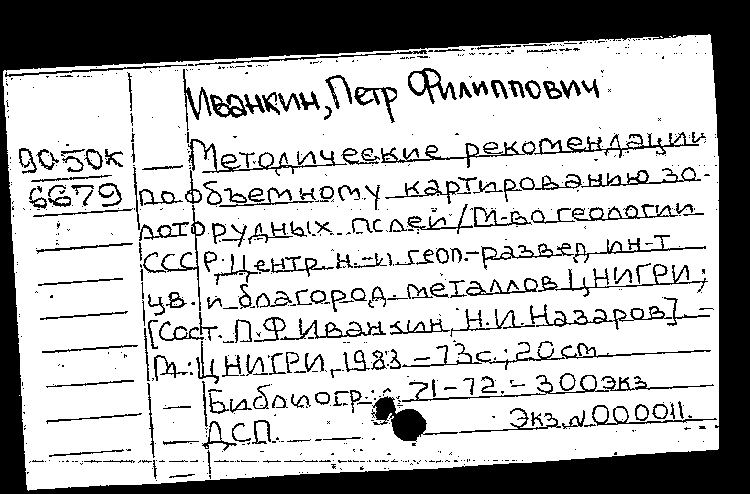 Иванкин, Петр Филиппович
90-50к
— Методические рекомендации
6679
по объемному картированию зо-
лоторудных полей / М-во геологии
СССР, Центр. н.-и. геол.-развед. ин-т
цв. и благород. металлов ЦНИГРИ;
[Сост. П.Ф. Иванкин, Н.И. Назаров]. –
М.: ЦНИГРИ, 1983. – 73 с.; 20 см.
— Библиогр.: с. 71-72. – 300 экз
— ДСП. Экз. N 000011.